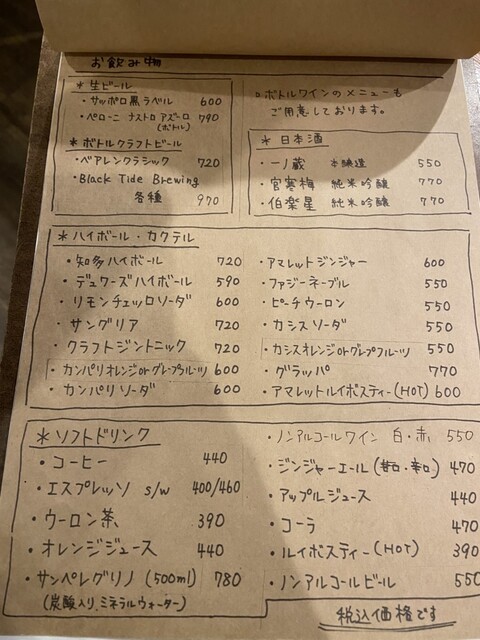 お飲み物
＊生ビール
・サッポロ黒ラベル 600
・ペローニ ナストロ アズーロ 790
(ボトル)
＊ボトルクラフトビール
・ベアレンクラシック 720
・Black Tide Brewing
各種 970
○ボトルワインのメニューも
ご用意しております。
＊日本酒
・一ノ蔵 本醸造 550
・宮寒梅 純米吟醸 770
・伯楽星 純米吟醸 770
＊ハイボール・カクテル
・知多ハイボール 720
・デュワーズハイボール 590
・リモンチェッロソーダ 600
・サングリア 720
・クラフトジントニック 720
・カンパリオレンジorグレープフルーツ 600
・カンパリソーダ 600
・アマレットジンジャー 600
・ファジーネーブル 550
・ピーチウーロン 550
・カシスソーダ 550
・カシスオレンジorグレープフルーツ 550
・グラッパ 770
・アマレットルイボスティー(HOT) 600
＊ソフトドリンク
・コーヒー 440
・エスプレッソ s/w 400/460
・ウーロン茶 390
・オレンジジュース 440
・サンペレグリノ (500ml) 780
(炭酸入りミネラルウォーター)
・ノンアルコールワイン 白・赤 550
・ジンジャーエール(甘口・辛口) 470
・アップルジュース 440
・コーラ 470
・ルイボスティー(HOT) 390
・ノンアルコールビール 550
税込価格です